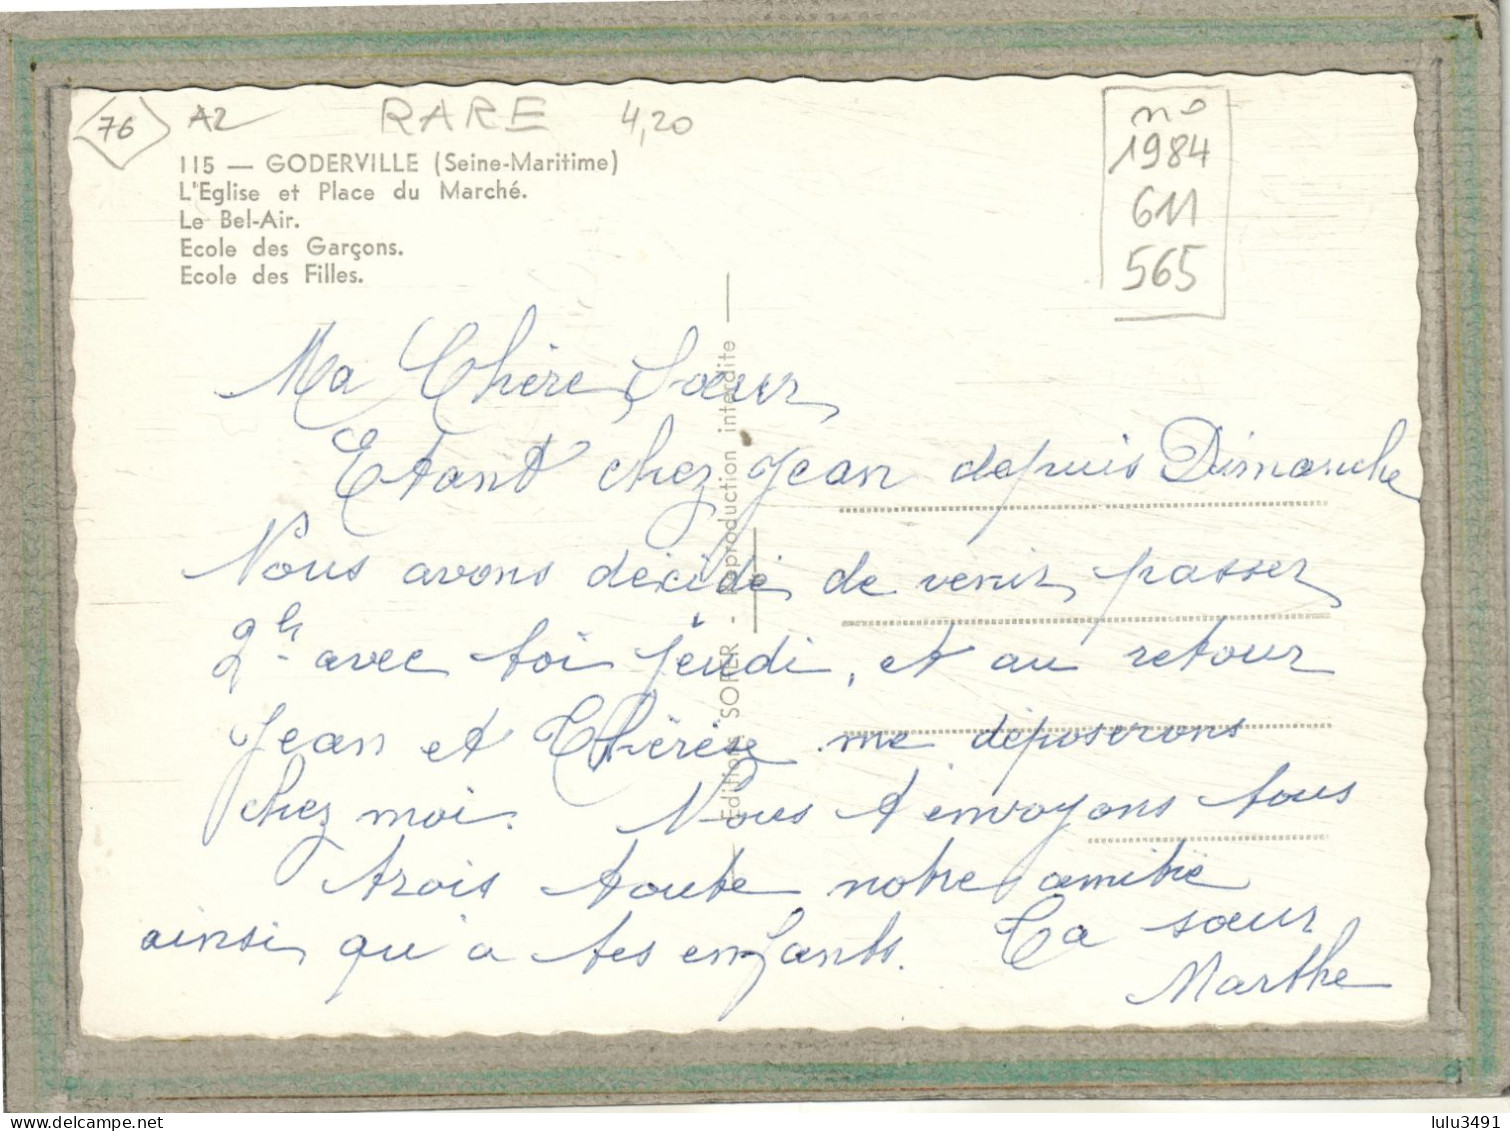 76 A2 RARE 4,20
115 — GODERVILLE (Seine-Maritime)
L'Eglise et Place du Marché.
Le Bel-Air.
Ecole des Garçons.
Ecole des Filles.
no
1984
611
565
Ma Chère Sœur,
Etant chez Jean depuis Dimanche
Nous avons décidé de venir passer
2h avec toi jeudi, et au retour
Jean et Thérèse me déposerons
chez moi. Nous t'envoyons tous
trois toute notre amitié
ainsi qu'a tes enfants. Ta sœur
Marthe
Editions SOFER - Reproduction interdite
lulu3491